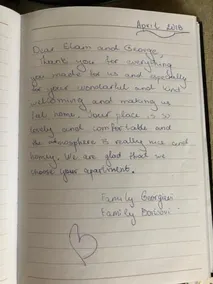 April 2018
Dear Eliam and George,
Thank you for everything
you made for us and especially
for your wonderful and kind
welcoming and making us
feel home. Your place is so
lovely and comfortable and
the atmosphere is really nice and
homey. We are glad that we
choose your apartment.
Family Georgievi
Family